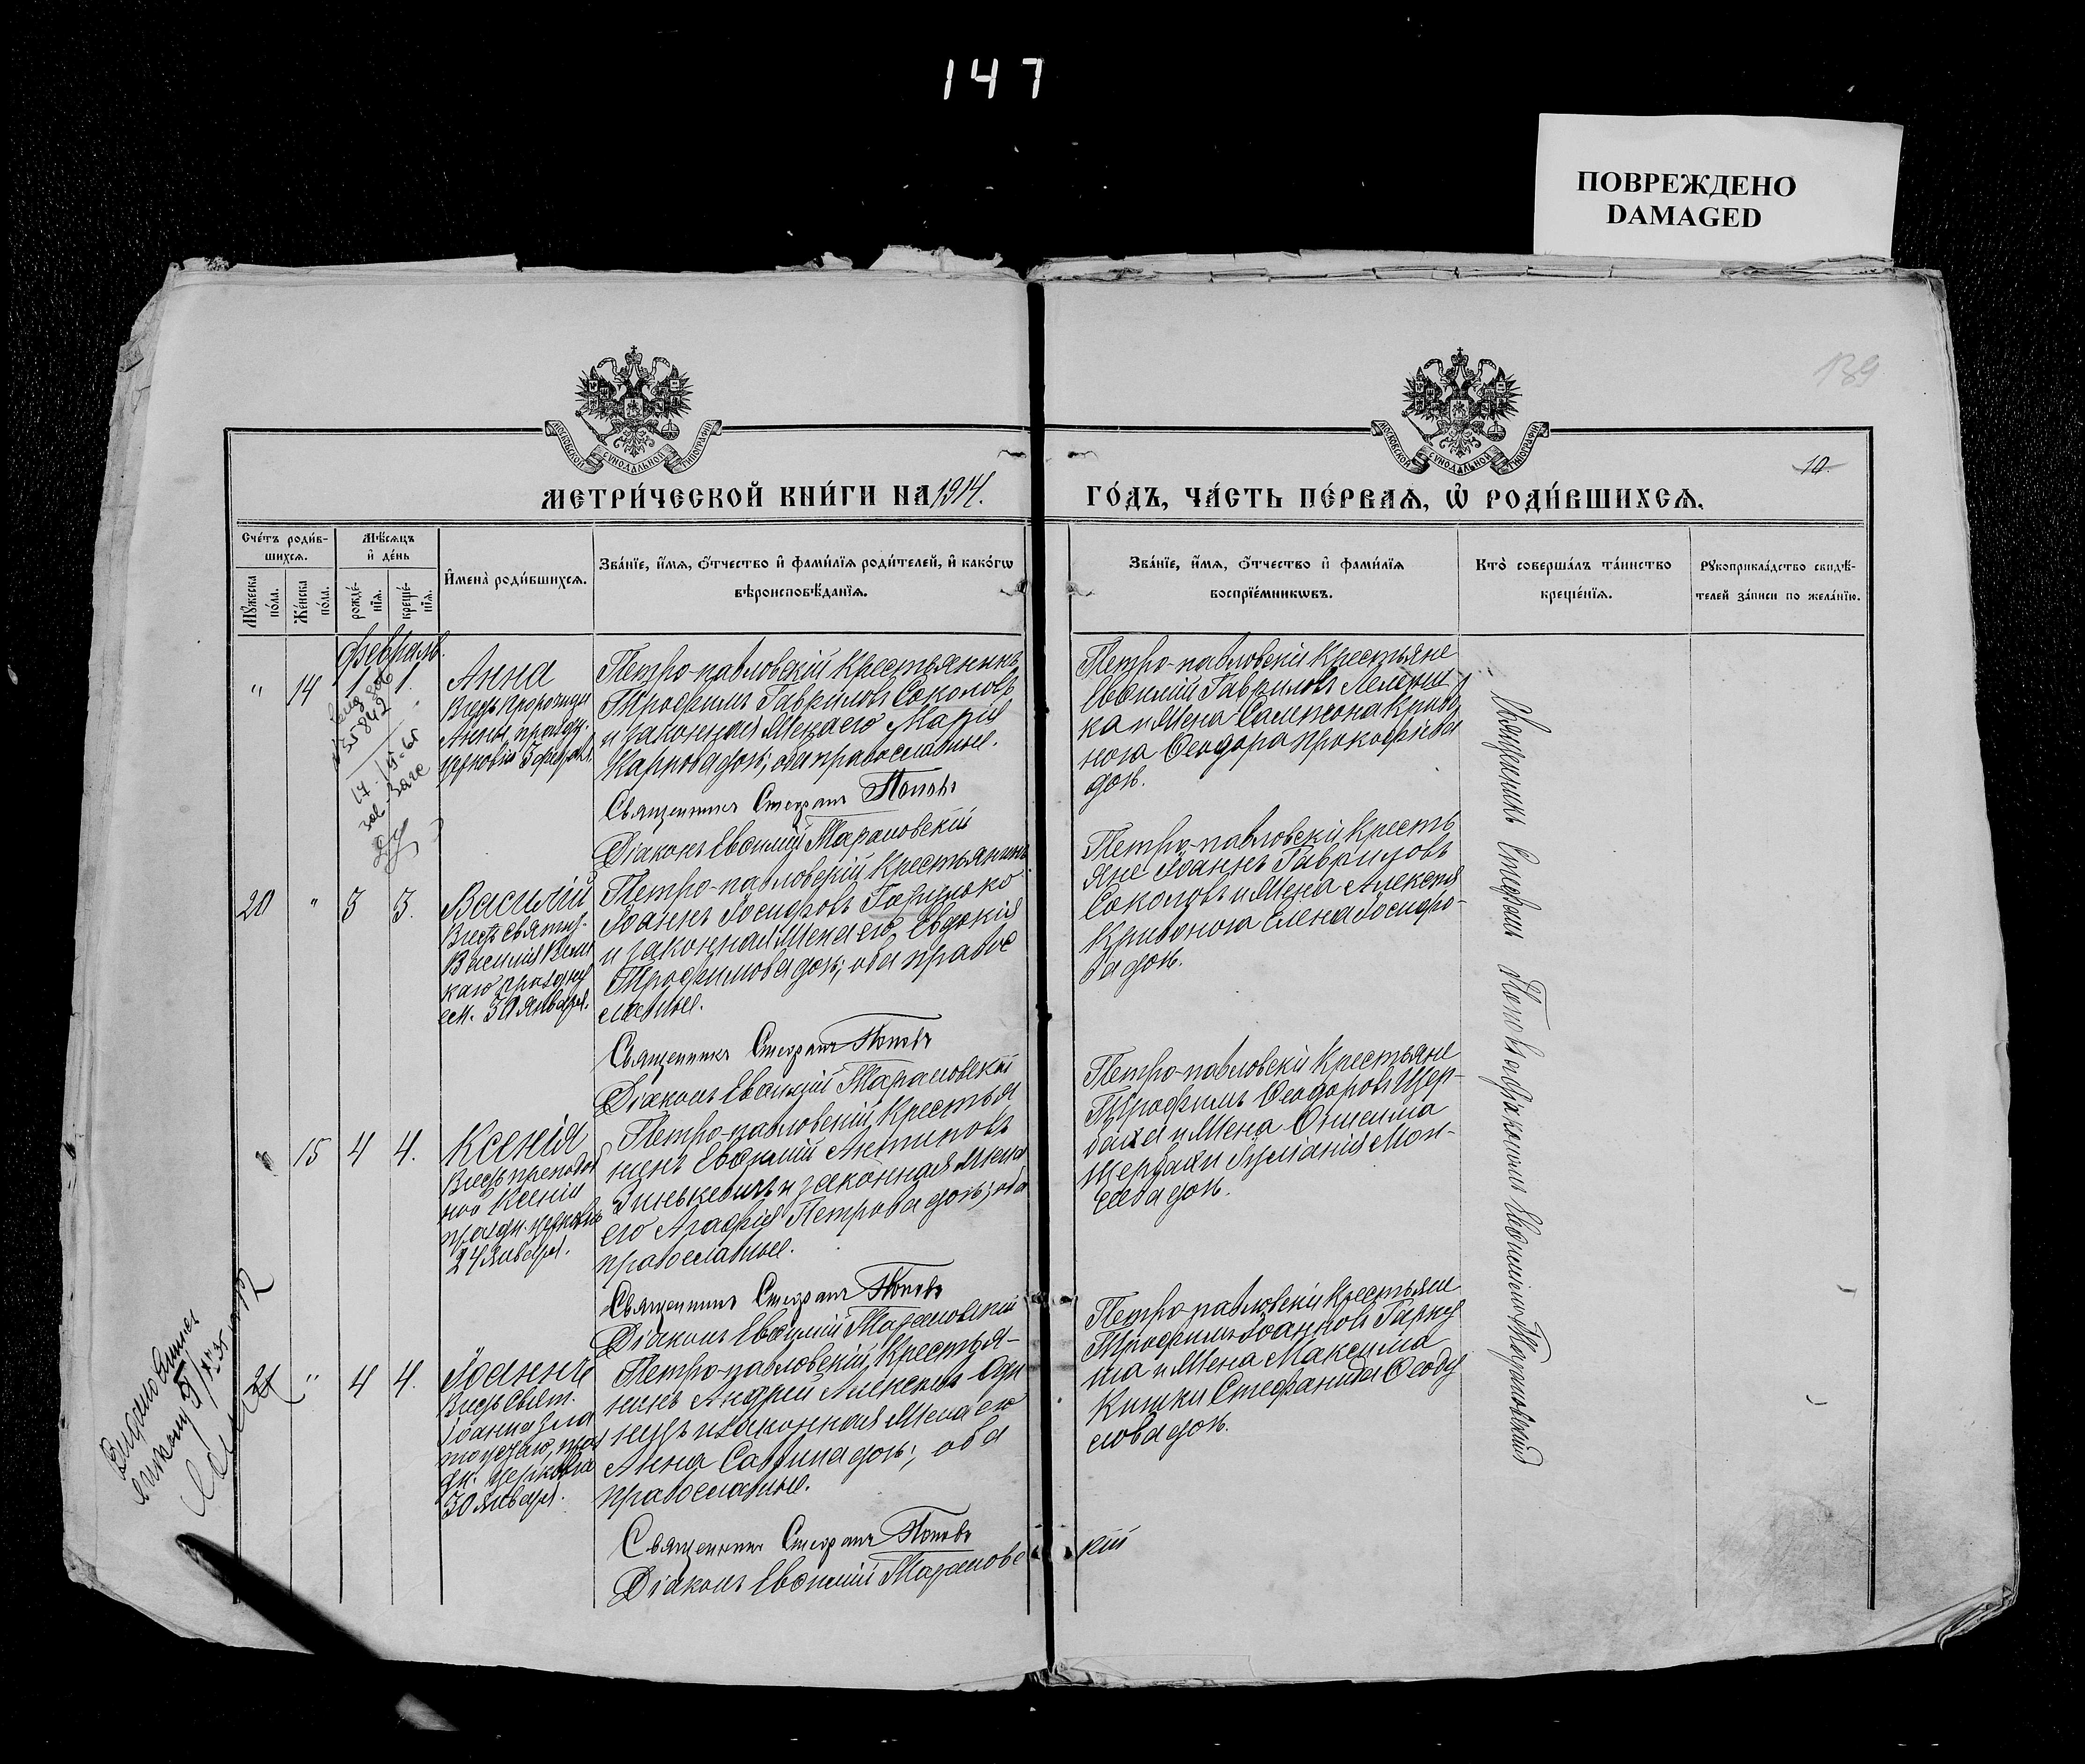 147
ПОВРЕЖДЕНО
DAMAGED
139
10.
МОСКОВСКОЙ СУНОДАЛЬНОЙ ТИПОГРАФІИ
МОСКОВСКОЙ СУНОДАЛЬНОЙ ТИПОГРАФІИ
МЕТРИ́ЧЕСКОЙ КНИ́ГИ НА 1914.
ГО́ДЪ, ЧА́СТЬ ПЕ́РВАѦ, Ѡ҆ РОДИ́ВШИХСѦ.
Сче́тъ роди́в-
шихсѧ.
Мѣ́сѧцъ
и҆ де́нь
Мꙋ́жеска
по́ла.
Же́нска
по́ла.
рожде́-
нїѧ.
креще́-
нїѧ.
И҆мена̀ роди́вшихсѧ.
Зва́нїе, и҆́мѧ, ѻ҆́тчество и҆ фами́лїѧ роди́телей, и҆ како́гѡ
вѣроисповѣ́данїѧ.
Зва́нїе, и҆́мѧ, ѻ҆́тчество и҆ фами́лїѧ
воспрїе́мникѡвъ.
Кто̀ соверша́лъ та́инство
креще́нїѧ.
Рꙋкоприкла́дство свидѣ́-
телей за́писи по жела́нїю.
Февраль.
" 14 1 1.
Анна
Въ честь Пророчицы
Анны, праздн.
церковію 3 февраля.
Петро-павловскій Крестьянинъ
Трофимъ Гавриловъ Соколовъ
и законная жена его Марія
Карпова дочь; оба православные.
Священникъ Стефанъ Поповъ
Діаконъ Евфимій Тарановскій
Петро-павловскіи Крестьяне
Евфимій Гавриловъ Лелюш
ка и жена Сампсона Криво
носа Феодора Прокофіева
дочь.
№ 35842
17
заг
20 " 3 3.
Василій
Въ честь Святит.
Василія Вели
каго праздну
ем. 30 Января.
Петро-павловскій Крестьянинъ
Іоаннъ Іосифовъ
и законная жена его Евдокія
Трофимова дочь; оба правос
лавные.
Священникъ Стефанъ Поповъ
Діаконъ Евфимій Тарановскій
Петро-павловскіи Кресть
яне Іоаннъ Гавриловъ
Соколовъ и жена Алексея
Кривоноса Елена Іосифо-
ва дочь.
" 15 4 4.
Ксенія
Въ честь преподоб
ной Ксеніи
праздн. церковію
24 Января.
Петро-павловскій Крестья
нинъ Евфимій Антиповъ
Зинькевичъ и законная жена
его Агафія Петрова дочь; оба
православные.
Священникъ Стефанъ Поповъ
Діаконъ Евфимій Тарановскій
Петро-павловскіи Крестьяне
Трофимъ Феодоровъ Щер-
баха и жена Онисима
Щербахи Іуліанія Мои-
сеева дочь.
21 " 4 4.
Іоаннъ
Въ честь Свят.
Іоанна Зла
тоустаго, праз
дн. церковію
30 Января.
Петро-павловскій Крестья-
нинъ Андрей Алексеевъ Оди
нецъ и законная жена его
Анна Саввина дочь; оба
православные.
Священникъ Стефанъ Поповъ
Діаконъ Евфимій Тарановс кій
Петро-павловскіи Крестьяне
Трофимъ Іоанновъ Гарку
ша и жена Максима
Кишки Стефанида Феоду
лова дочь.
Священникъ Стефанъ Поповъ съ діакономъ Евфиміемъ Тарановскій